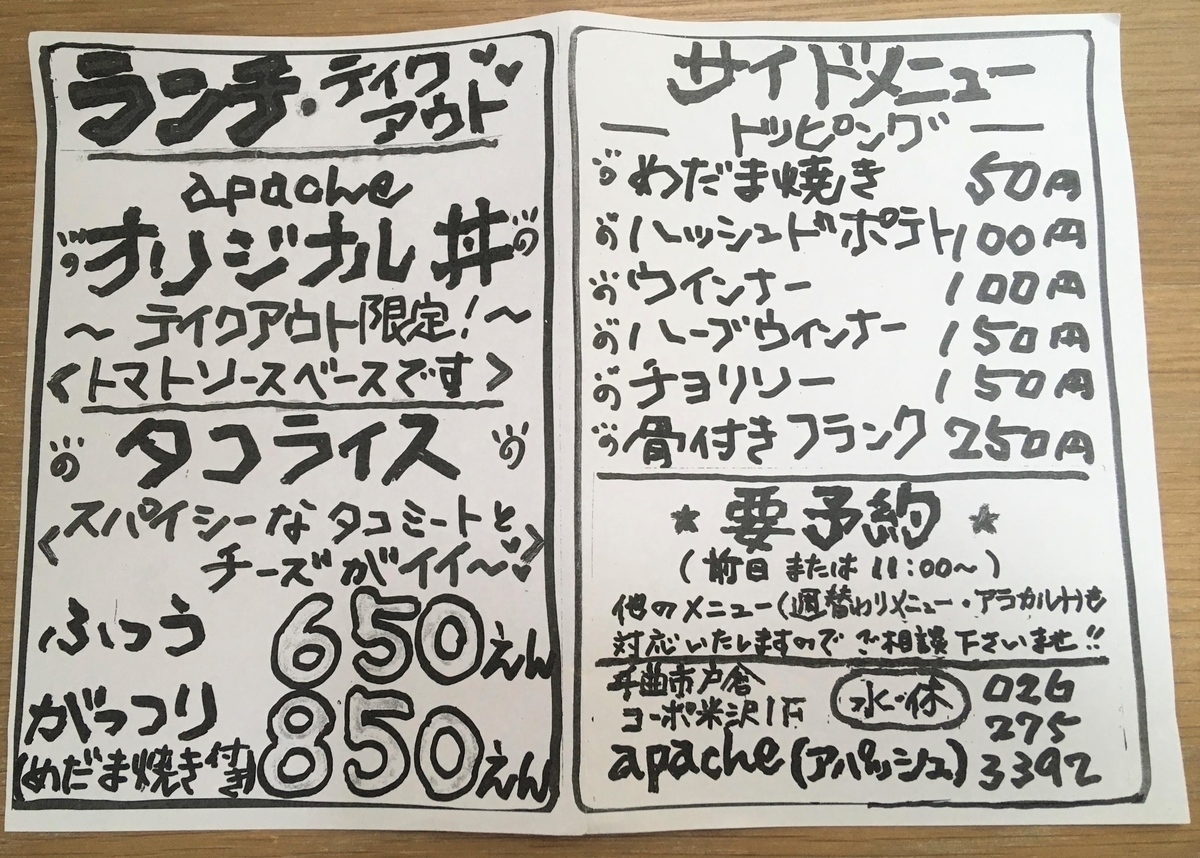 ランチ・テイク
アウト
apache
オリジナル丼
～テイクアウト限定!～
<トマトソースベースです>
タコライス
<スパイシーなタコミートと
チーズがイイ～♥>
ふつう 650えん
がっつり
(めだま焼き付き) 850えん
サイドメニュー
― トッピング ―
めだま焼き 50円
ハッシュドポテト 100円
ウインナー 100円
ハーブウインナー 150円
チョリソー 150円
骨付きフランク 250円
★ 要予約 ★
(前日または11:00～)
他のメニュー(週替わりメニュー・アラカルト)も
対応いたしますのでご相談下さいませ!!
千曲市戸倉
コーポ米沢1F
水・休
026
275
3392
apache (アパッシュ)